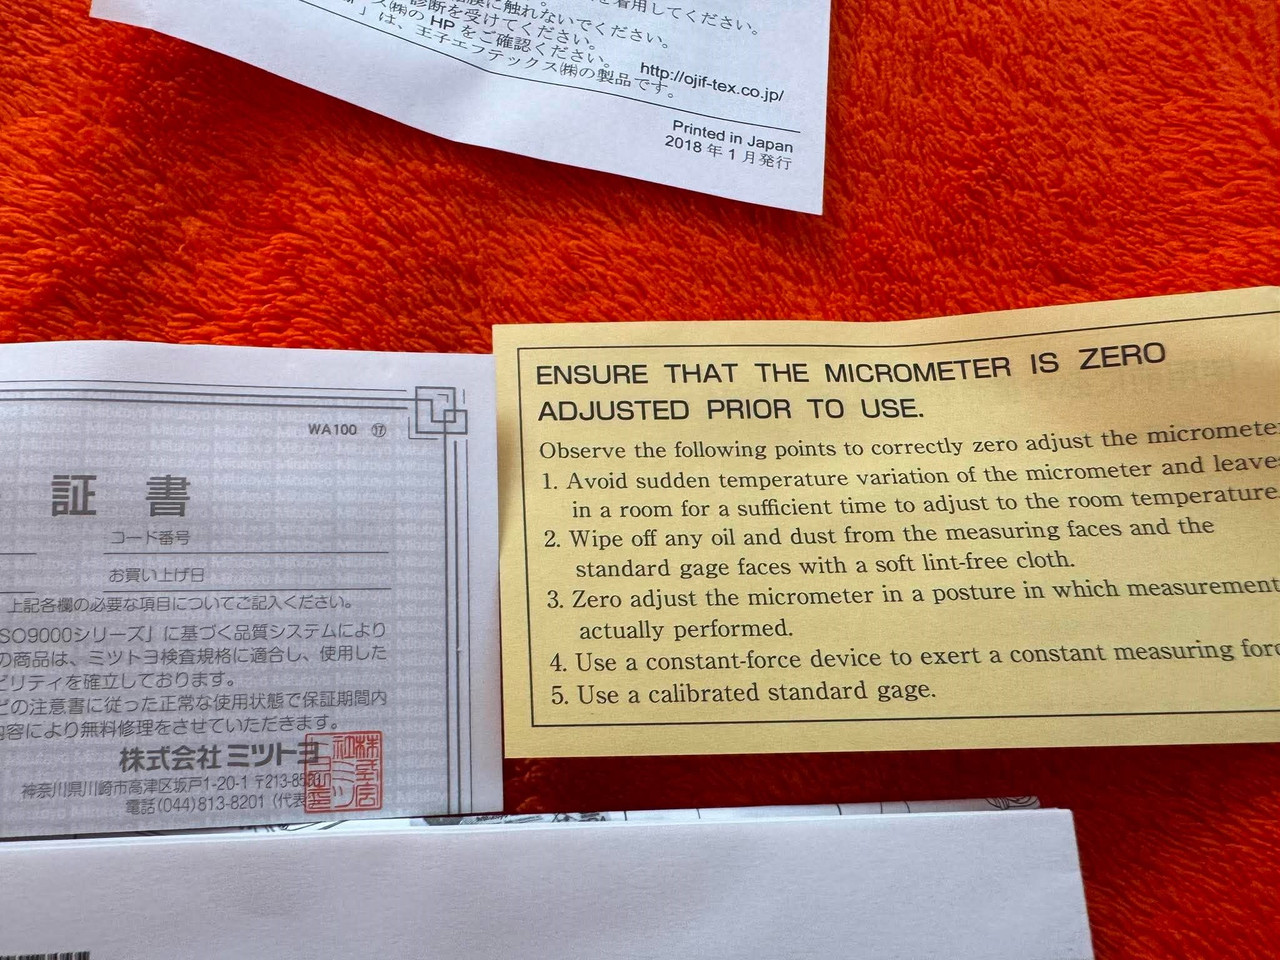 を着用してください。
に触れないでください。
診断を受けてください。
ス㈱の HP をご確認ください。 http://ojif-tex.co.jp/
」は、王子エフテックス㈱の製品です。
Printed in Japan
2018 年 1 月発行
WA100 ⑰
証 書
コード番号
お買い上げ日
上記各欄の必要な項目についてご記入ください。
SO9000シリーズ」に基づく品質システムにより
の商品は、ミツトヨ検査規格に適合し、使用した
ビリティを確立しております。
どの注意書に従った正常な使用状態で保証期間内
内容により無料修理をさせていただきます。
株式会社 ミツトヨ
神奈川県川崎市高津区坂戸1-20-1 〒213-8533
電話(044)813-8201 (代表
ENSURE THAT THE MICROMETER IS ZERO
ADJUSTED PRIOR TO USE.
Observe the following points to correctly zero adjust the micromete
1. Avoid sudden temperature variation of the micrometer and leave
in a room for a sufficient time to adjust to the room temperature.
2. Wipe off any oil and dust from the measuring faces and the
standard gage faces with a soft lint-free cloth.
3. Zero adjust the micrometer in a posture in which measurement
actually performed.
4. Use a constant-force device to exert a constant measuring forc
5. Use a calibrated standard gage.